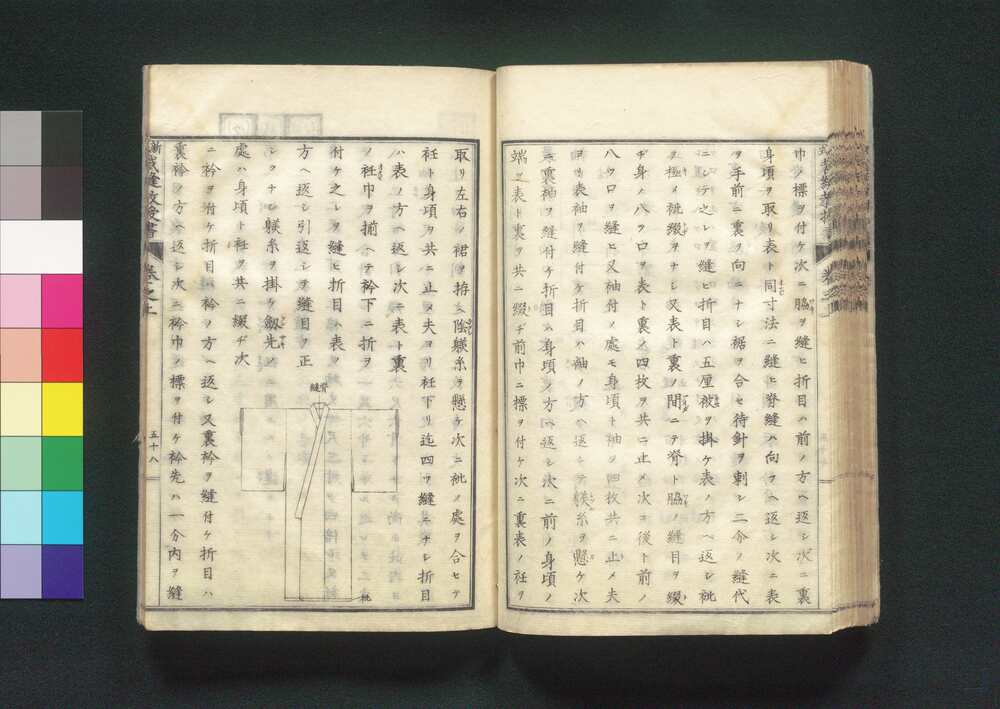 巾ノ標ヲ付ケ次ニ脇ヲ縫ヒ折目ハ前ノ方ヘ返シ次ニ裏
身頃ヲ取リ表ト同寸法ニ縫ヒ脊縫ハ向フヘ返シ次ニ表
ヲ手前ニ裏ヲ向ニナシ裾ヲ合セ待針ヲ刺シ二分ノ縫代
ニシテ之レヲ縫ヒ折目ハ五厘被ヲ掛ケ表ノ方ヘ返シ紕
ヲ極メ紕綴ヲナシ又表ト裏ノ間ニテ脊ト脇ノ縫目ヲ綴
ヂ身ノ八ツ口ヲ表ト裏ノ四枚ヲ共ニ止メ次ニ後ト前ノ
八ツ口ヲ縫ヒ又袖付ノ處モ身頃ト袖ヲ四枚共ニ止メ夫
ヨリ表袖ヲ縫付ケ折目ハ袖ノ方ヘ返シテ躾糸ヲ懸ケ次
ニ裏袖ヲ縫付ケ折目ハ身頃ノ方ヘ返シ次ニ前ノ身頃ノ
端ヲ表ト裏ヲ共ニ綴ヂ前巾ニ標ヲ付ケ次ニ裏表ノ衽ヲ
取リ左右ノ裙ヲ拵ヘ陰躾糸ヲ懸ケ次ニ紕ノ處ヲ合セテ
衽ト身頃ヲ共ニ止メ夫ヨリ衽下リ迄四ツ縫ニナシ折目
ハ表ノ方ヘ返シ次ニ表ト裏
ノ衽巾ヲ揃ヘテ衿下ニ折ヲ
付ケ之レヲ縫ヒ折目ハ表ノ
方ヘ返シ引返シヲ縫目ヲ正
シクナシ躾糸ヲ掛ケ劔先ノ
處ハ身頃ト衽ヲ共ニ綴ヂ次
ニ衿ヲ付ケ折目ハ衿ノ方ヘ返シ又裏衿ヲ縫付ケ折目ハ
裏衿ノ方ヘ返シ次ニ衿巾ノ標ヲ付ケ衿先ハ一分内ヲ縫
脊縫
紕
裁縫教授書
卷之上
五十八